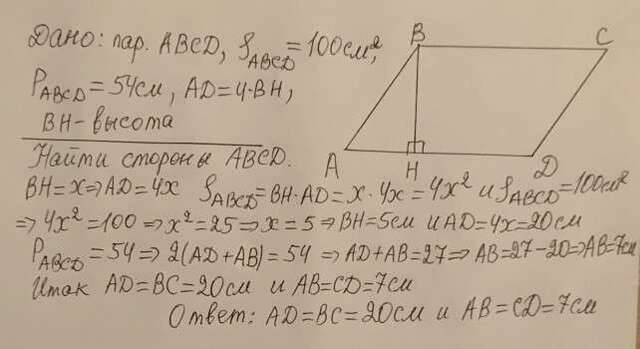 Дано: пар. ABCD, S_ABCD = 100см²,
P_ABCD = 54см, AD = 4·BH,
BH - высота
Найти стороны ABCD.
B
C
A
H
D
BH = x ⇒ AD = 4x S_ABCD = BH·AD = x·4x = 4x² и S_ABCD = 100см²
⇒ 4x² = 100 ⇒ x² = 25 ⇒ x = 5 ⇒ BH = 5см и AD = 4x = 20см
P_ABCD = 54 ⇒ 2(AD + AB) = 54 ⇒ AD + AB = 27 ⇒ AB = 27 - 20 ⇒ AB = 7см
Итак AD = BC = 20см и AB = CD = 7см
Ответ: AD = BC = 20см и AB = CD = 7см